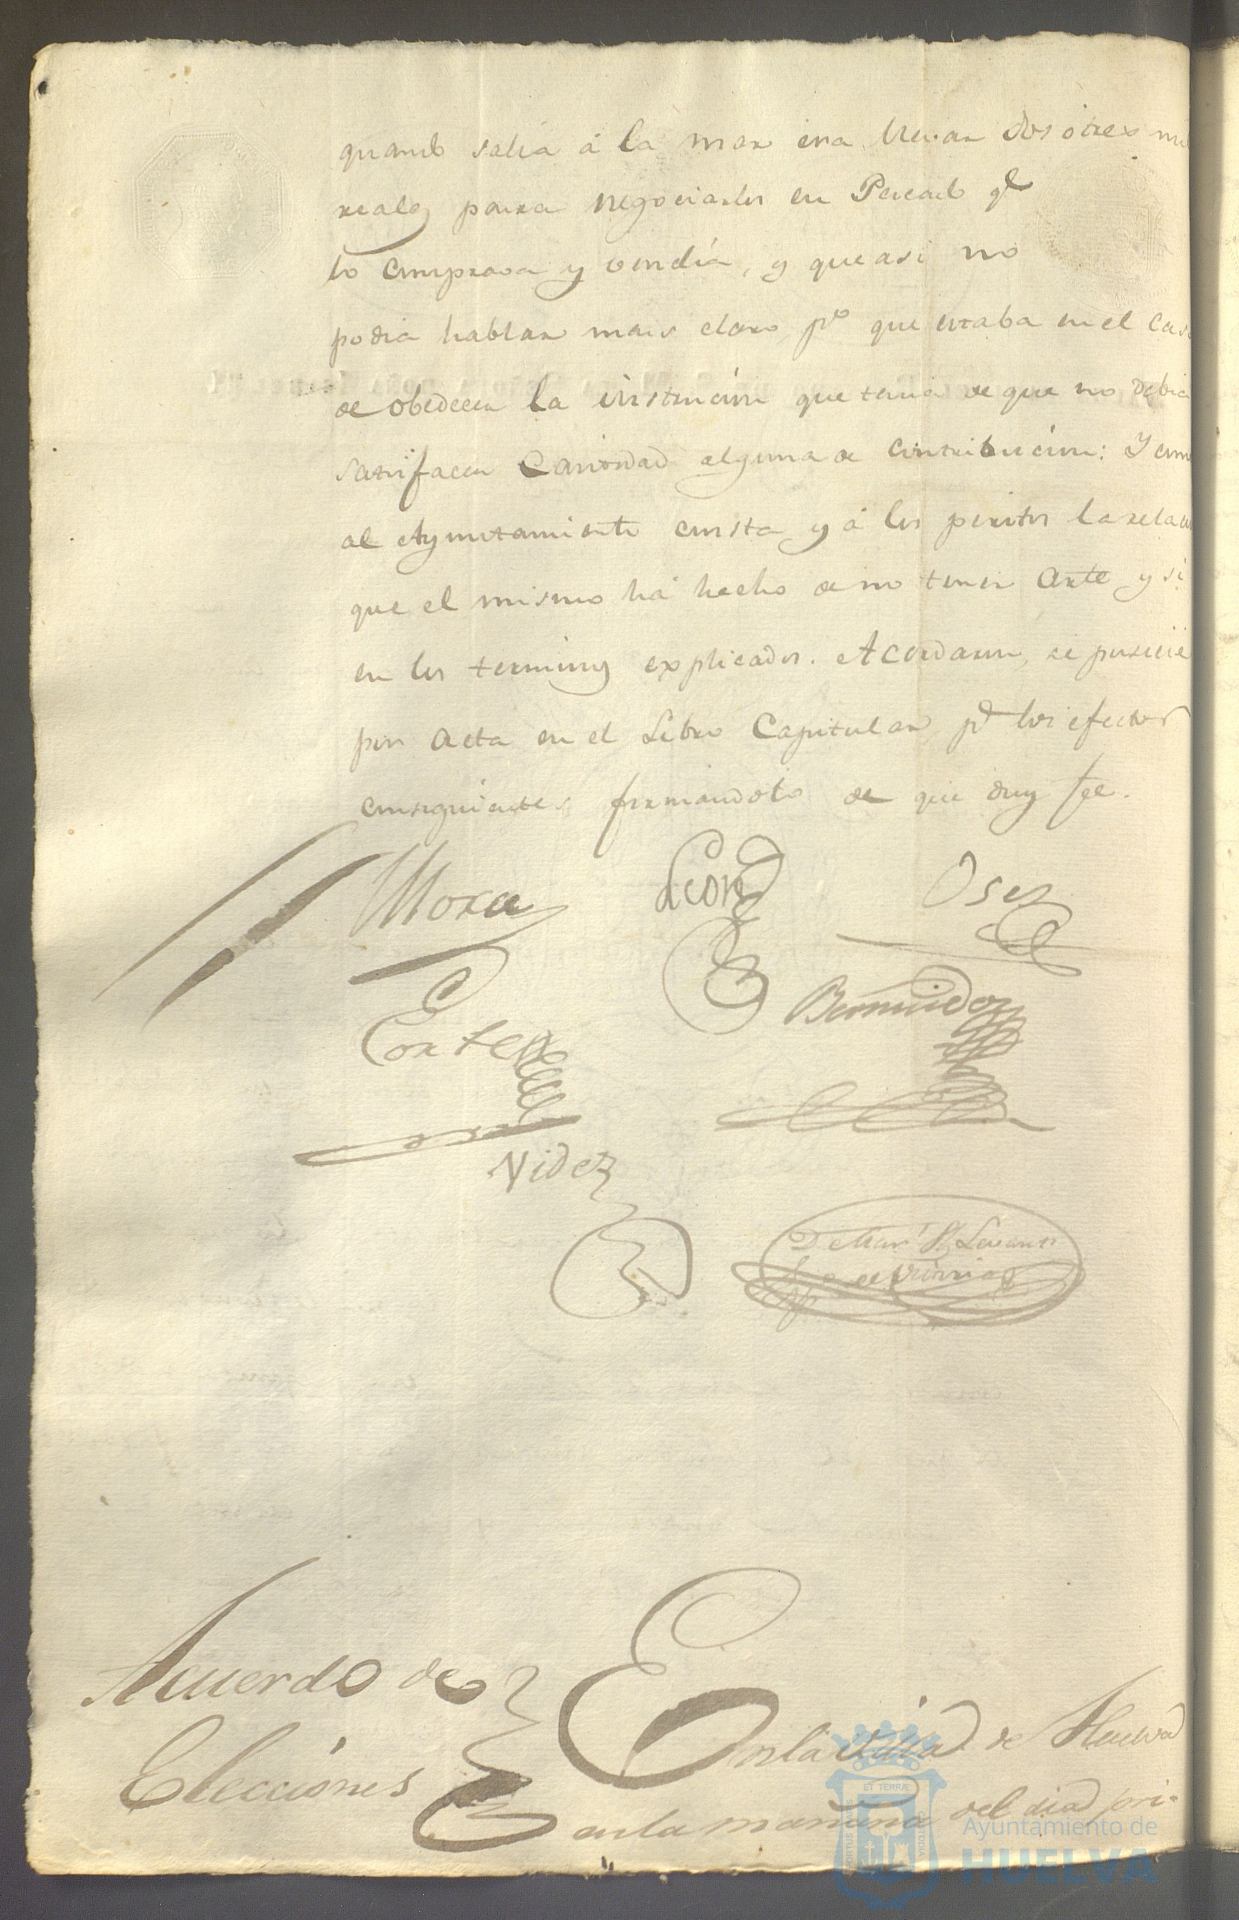 quando salia á la mar era llevar dos ó tres mi
reales para negociarlos en Pescado qe
lo comprava y vendía, y que asi no
podia hablar mas claro, po que estaba en el cas
de obedecer la instrucion que tenia de que no debia
satisfacer Cantidad alguna de contribucion: Y com
al Ayuntamiento consta y á los peritos la relac
que el mismo há hecho de no tener Arte y si
en los terminos explicados. Acordaron, se
por Acta en el Libro Capitular pa los efectos
consiguientes firmandolo de que doy fee.
Mora Leon Osez
Cortes Bermudez
Videz
Acuerdo de
Elecciones
En la Villa de Huelva
en la mañana del dia pri-
ET TERRÆ
Ayuntamiento de
HUELVA